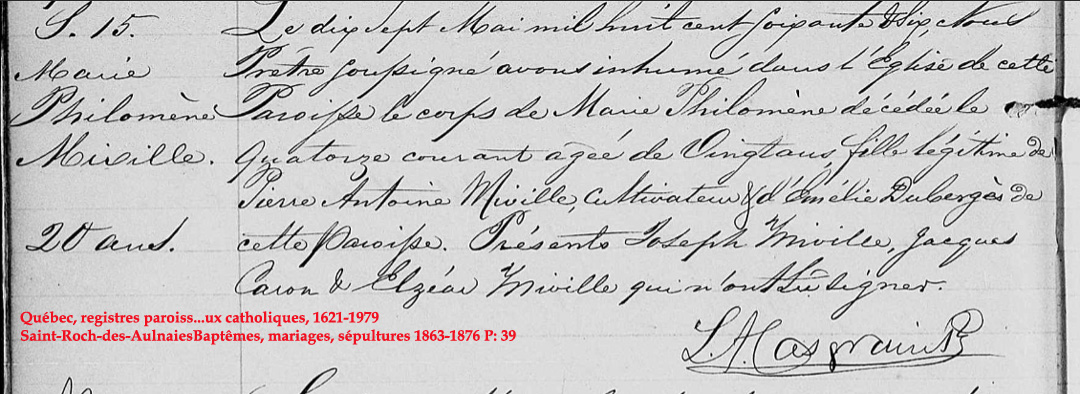 S. 15.
Marie
Philomène
Miville.
20 ans.
Le dix sept Mai mil huit cent soixante & six, Nous
Prêtre soussigné avons inhumé dans l'Église de cette
Paroisse le corps de Marie Philomène décédée le
quatorze courant agée de Vingt ans, fille légitime de
Pierre Antoine Miville, cultivateur & d'Emélie Dubergès de
cette paroisse. Présents Joseph Miville, Jacques
Caron & Elzéar Miville qui n'ont su signer.
Québec, registres paroiss...ux catholiques, 1621-1979
Saint-Roch-des-AulnaiesBaptêmes, mariages, sépultures 1863-1876 P: 39
Casgrain